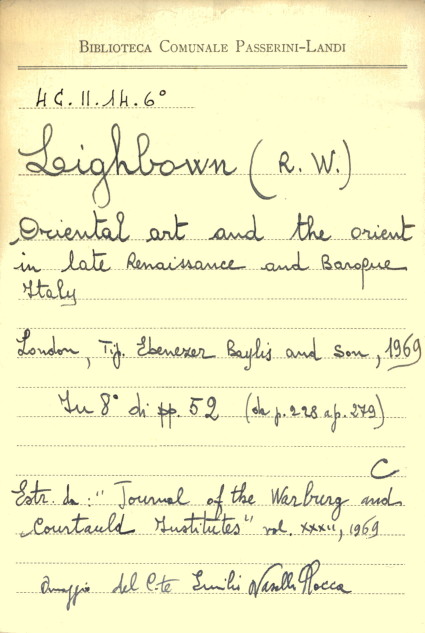 BIBLIOTECA COMUNALE PASSERINI-LANDI
4C.II.14.6°
Leighbown (R. W.)
Oriental art and the orient
in late Renaissance and Baroque
Italy
London, Tip. Ebenezer Baylis and Son, 1969
In 8° di pp. 52 (da p. 228 a p. 279)
C
Estr. da: "Journal of the Warburg and
Courtauld Institutes" vol. XXXII, 1969
Omaggio del C.te Emilio Nasalli Rocca